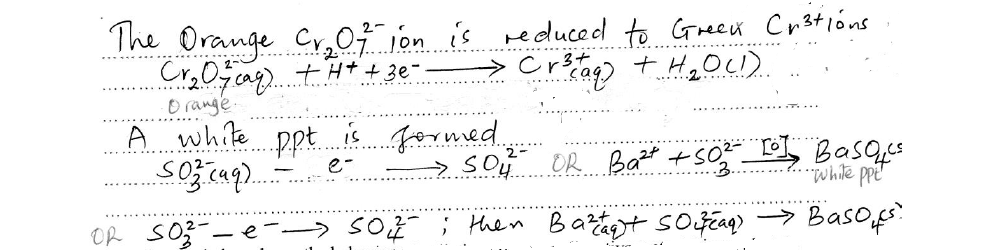 The Orange Cr₂O₇²⁻ ion is reduced to Green Cr³⁺ ions
Cr₂O₇²⁻(aq) + H⁺ + 3e⁻ ⟶ Cr³⁺(aq) + H₂O(l)
Orange
A white ppt is formed
SO₃²⁻(aq) – e⁻ ⟶ SO₄²⁻ OR Ba²⁺ + SO₃²⁻ [O]⟶ BaSO₄(s)
White ppt
OR SO₃²⁻ – e⁻ ⟶ SO₄²⁻ ; then Ba²⁺(aq) + SO₄²⁻(aq) ⟶ BaSO₄(s)